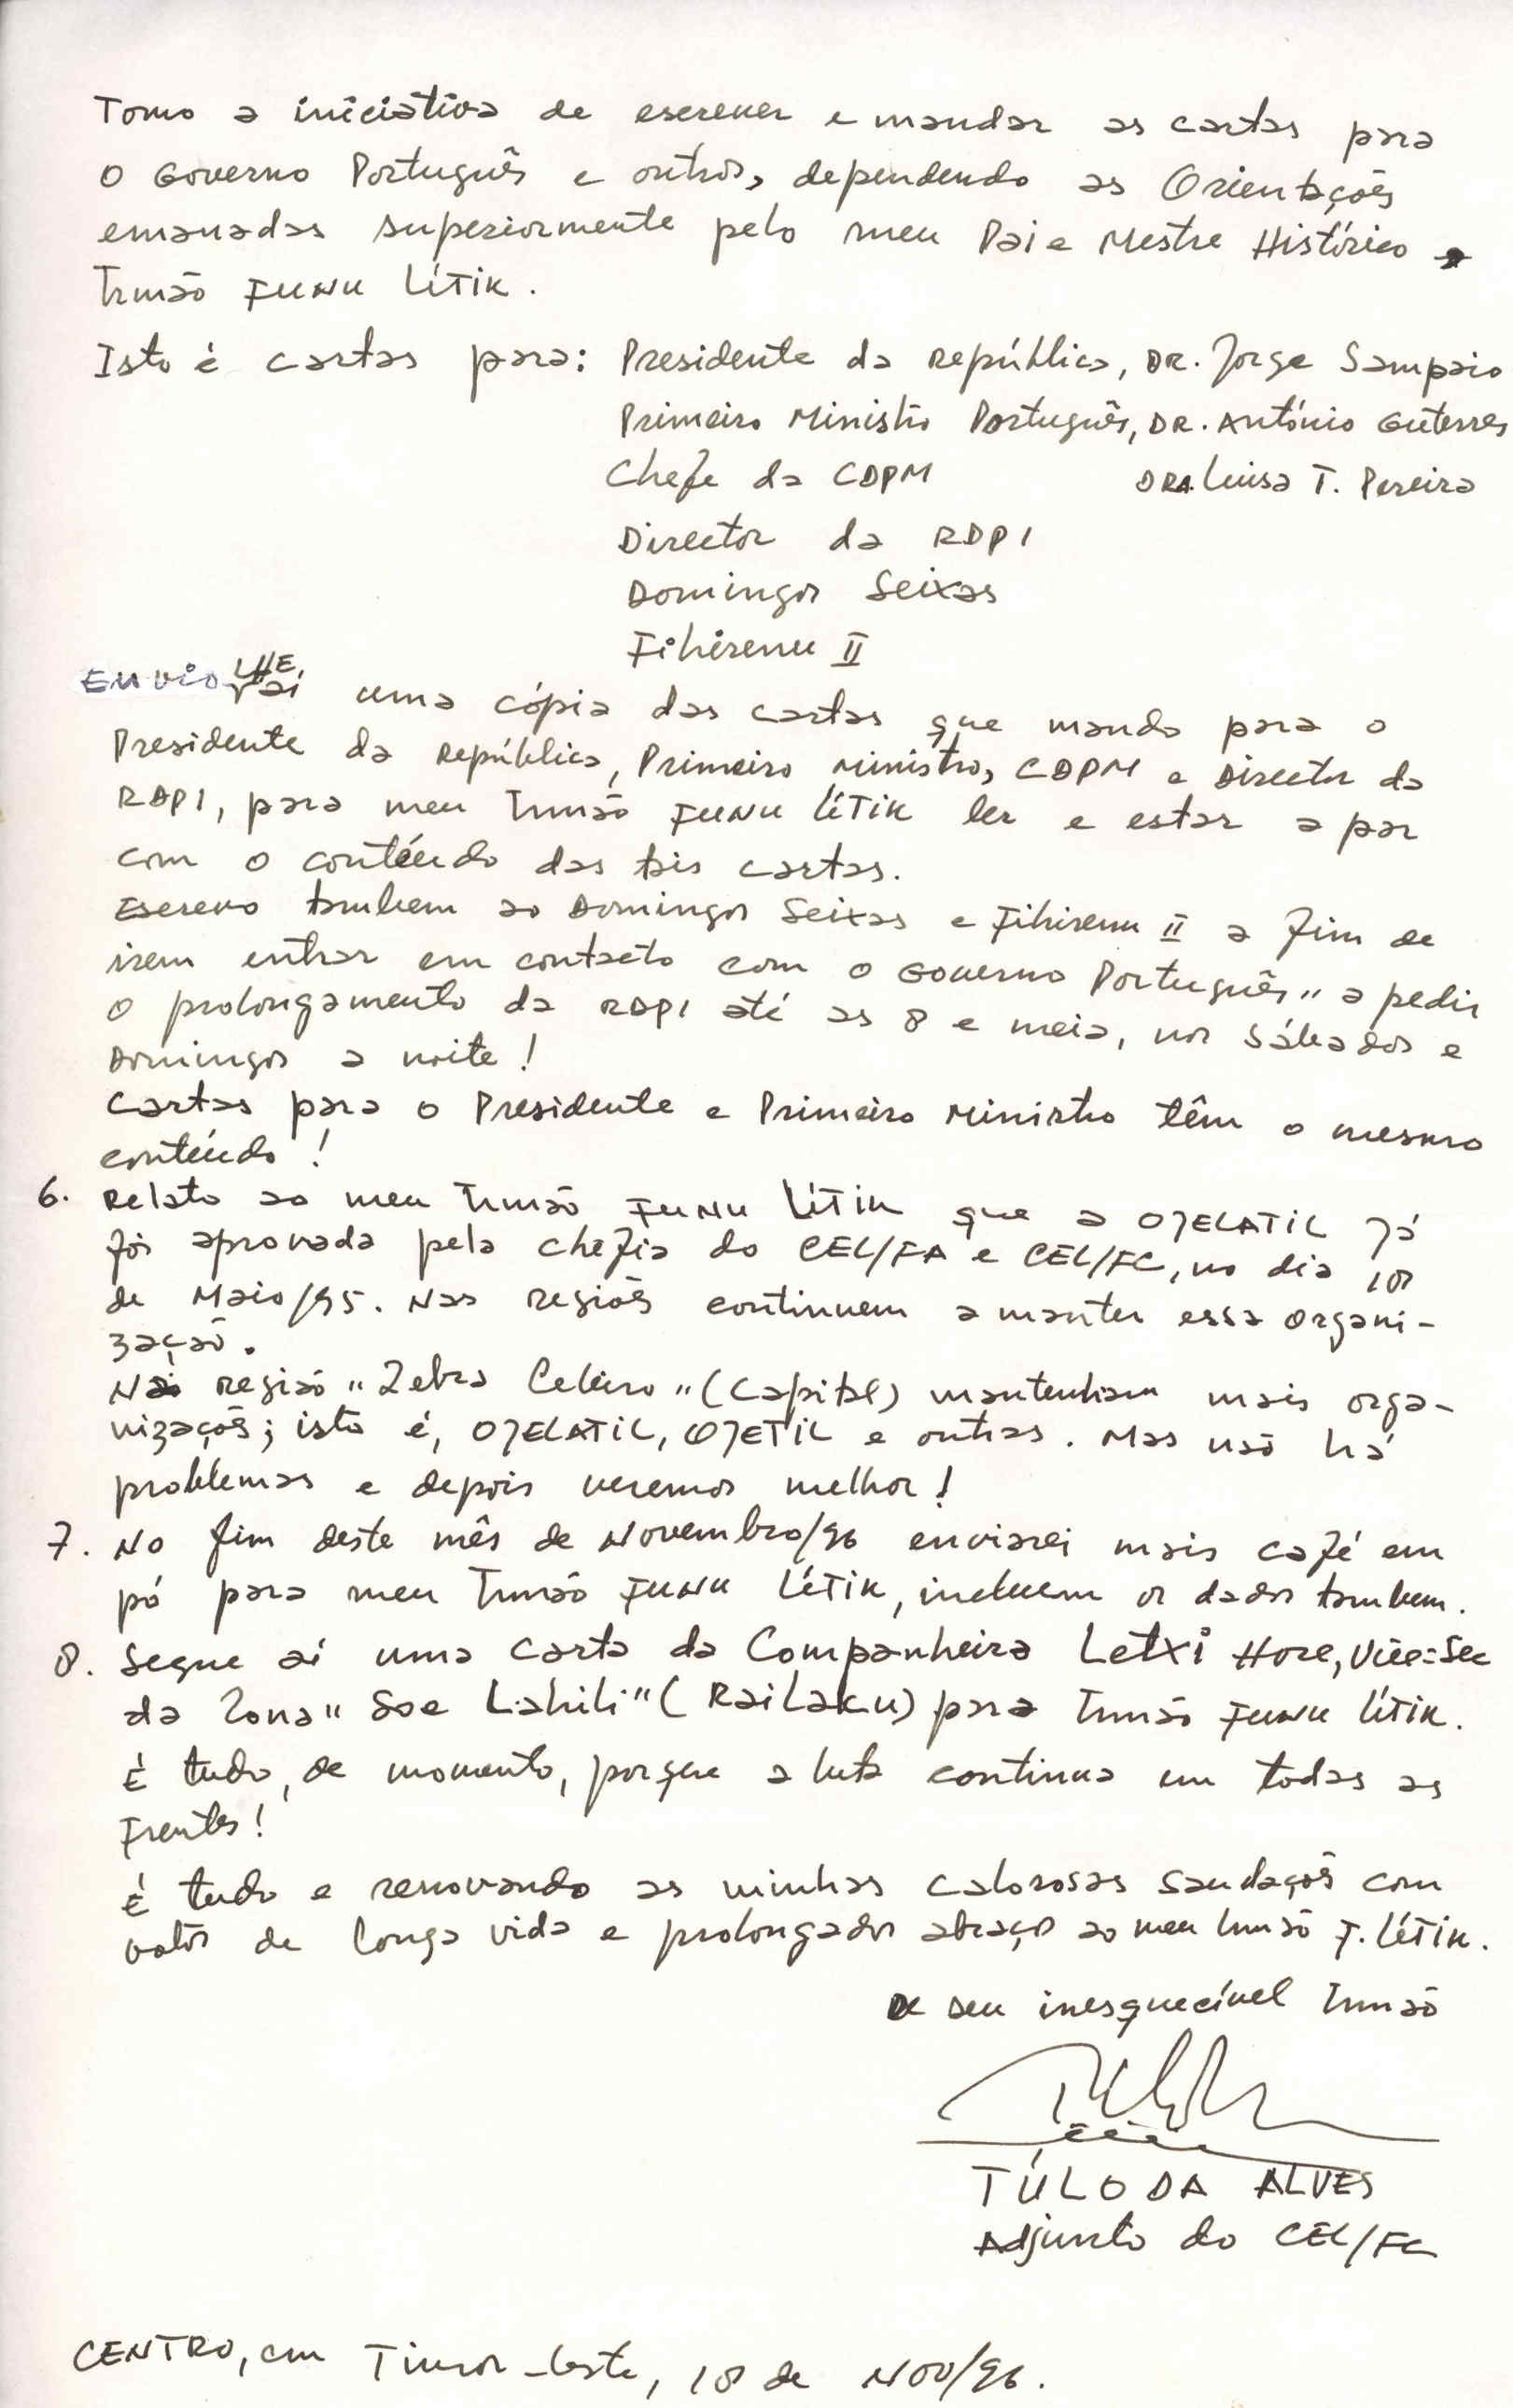 Tomo a iniciativa de escrever e mandar as cartas para
o Governo Português e outros, dependendo as Orientações
emanadas superiormente pelo meu Pai e Mestre Histórico
Irmão FUNU LÍTIK.
Isto é cartas para: Presidente da República, DR. Jorge Sampaio
Primeiro Ministro Português, DR. António Guterres
Chefe da CDPM DRA. Luisa T. Pereira
Director da RDPI
Domingos Seixas
Fihirenu II
Envio-LHE aí uma cópia das cartas que mando para o
Presidente da República, Primeiro Ministro, CDPM e Director da
RDPI, para meu Irmão FUNU LÍTIK ler e estar a par
com o contéudo das tais cartas.
Escrevo tambem ao Domingos Seixas e Fihirenu II a fim de
irem entrar em contacto com o Governo Português" a pedir
o prolongamento da RDPI até as 8 e meia, nos Sábados e
Domingos a noite!
Cartas para o Presidente e Primeiro Ministro têm o mesmo
contéudo!
6. Relato ao meu Irmão FUNU LÍTIK que a OJELATIL já
foi aprovada pela chefia do CEL/FA e CEL/FC, no dia 10
de Maio/95. Nas regiões continuem a manter essa organi-
zação.
Na região "Zebra Celeiro" (Capital) mantenham mais orga-
nizações; isto é, OJELATIL, OJETIL e outras. Mas não há
problemas e depois veremos melhor!
7. No fim deste mês de Novembro/96 enviarei mais café em
pó para meu Irmão FUNU LÍTIK, incluem os dados tambem.
8. Segue aí uma carta da Companheira Letxi Hore, Vice-Sec
da Zona "Soe Lahili" (Railaku) para Irmão FUNU LÍTIK.
É tudo, de momento, porque a luta continua em todas as
Frentes!
É tudo e renovando as minhas calorosas saudações com
votos de longa vida e prolongados abraços ao meu Irmão F. LÍTIK.
De seu inesquecível Irmão
TÚLO DA ALVES
Adjunto do CEL/FC
CENTRO, em Timor-Leste, 18 de NOV/96.